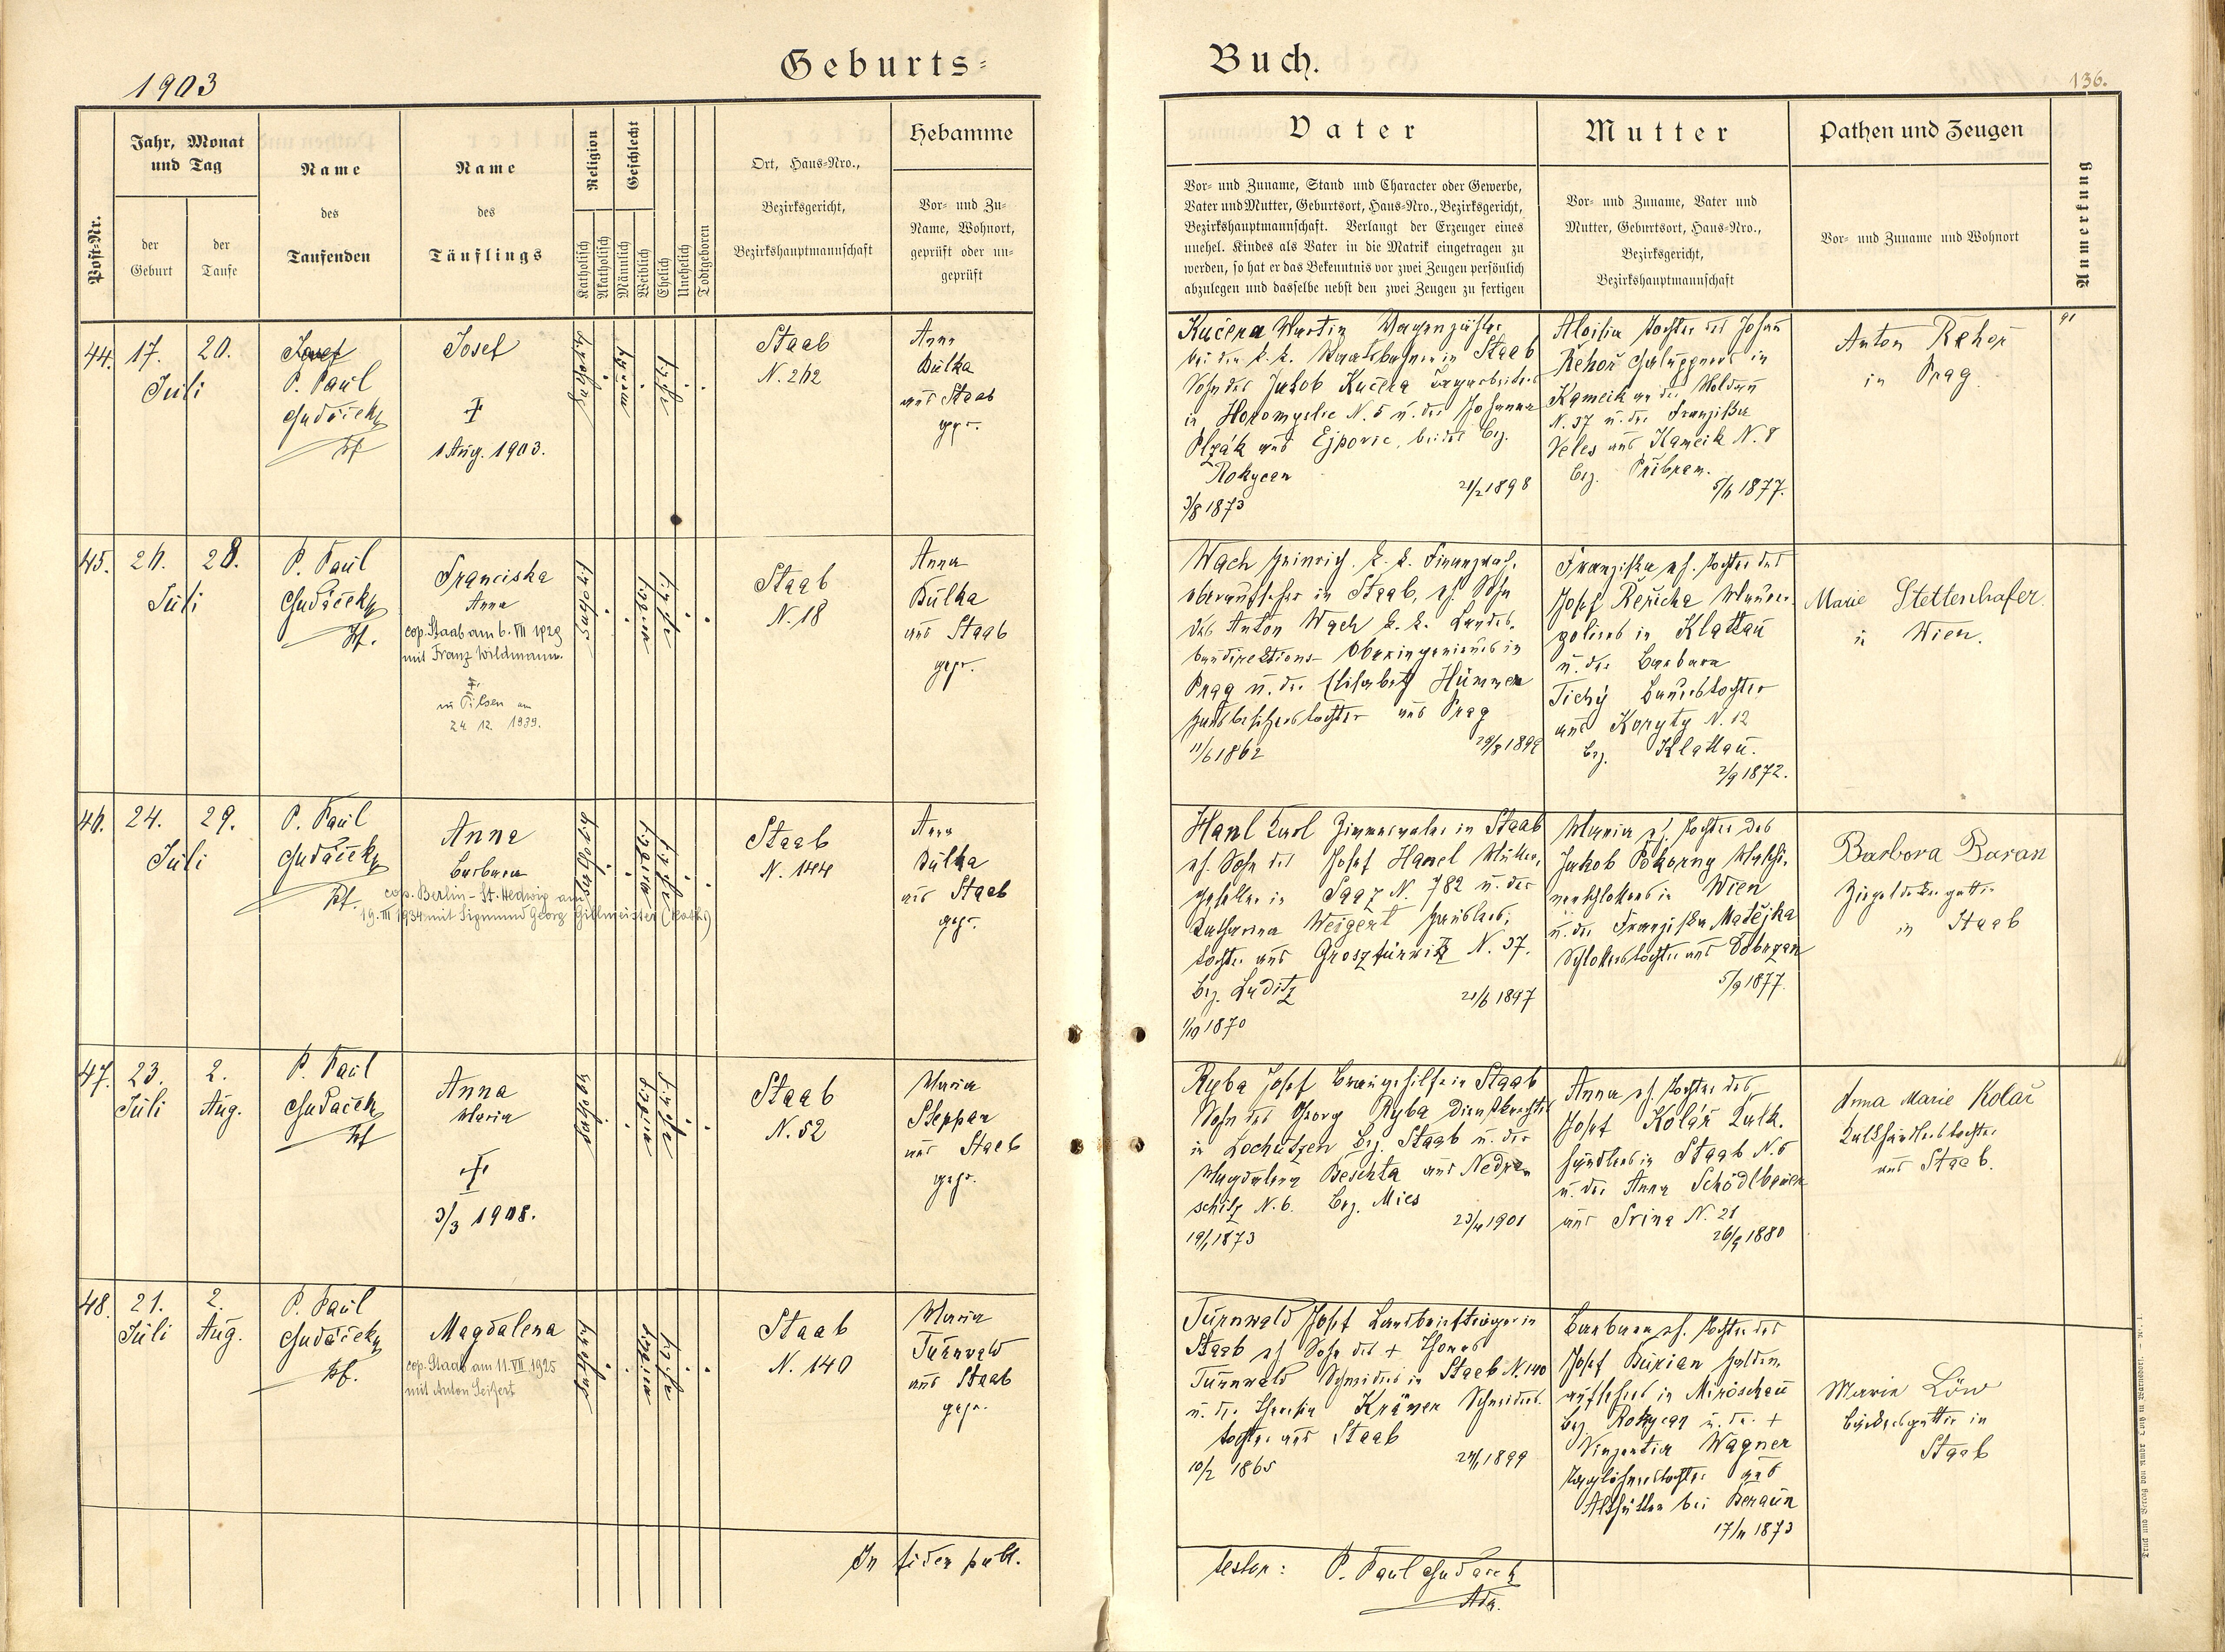 Geburts-
Buch.
1903
136.
Post-Nr.
Jahr, Monat
und Tag
der
Geburt
der
Taufe
Name
des
Taufenden
Name
des
Täuflings
Religion
Katholisch
Akatholisch
Geschlecht
Männlich
Weiblich
Ehelich
Unehelich
Todtgeboren
Ort, Haus-Nro.,
Bezirksgericht,
Bezirkshauptmannschaft
Hebamme
Vor- und Zu-
Name, Wohnort,
geprüft oder un-
geprüft
Vater
Vor- und Zuname, Stand und Character oder Gewerbe,
Vater und Mutter, Geburtsort, Haus-Nro., Bezirksgericht,
Bezirkshauptmannschaft. Verlangt der Erzeuger eines
unehel. Kindes als Vater in die Matrik eingetragen zu
werden, so hat er das Bekenntnis vor zwei Zeugen persönlich
abzulegen und dasselbe nebst den zwei Zeugen zu fertigen
Mutter
Vor- und Zuname, Vater und
Mutter, Geburtsort, Haus-Nro.,
Bezirksgericht,
Bezirkshauptmannschaft
Pathen und Zeugen
Vor- und Zuname und Wohnort
Anmerkung
44.
17.
20.
Juli
Josef
P. Paul
Josef
1 Aug. 1903.
Staab
N. 262
Anna
Bulka
aus Staab
gepr.
Kučera Martin
bei der k. k. Staatsbahn in Staab
Sohn des Jakob Kučera
in Horomyslic N. 5 u. der Johanna
Plzák aus Ejpovic, beides Bez.
Rokycan
21/2 1898
3/8 1873
Aloisia Tochter des Johann
Řehoř Chaluppners in
Kameik an der Moldau
N. 37 u. der Franziska
Veles aus Kameik N. 8
Bez. Přibram.
5/6 1877.
Anton Řehoř
in Prag
91
45.
26.
28.
Juli
P. Paul
Pf.
Franciska
Anna
cop. Staab am 6. VII 1929
mit Franz Wildmann.
in Pilsen am
24. 12. 1939.
Staab
N. 18
Anna
Bulka
aus Staab
gepr.
Wach Heinrich. k. k. Finanzwach-
oberaufseher in Staab, eh. Sohn
des Anton Wach k. k. Landes-
baudirektions- Oberingenieurs in
Prag u. der Elisabeth Hümmer
Hausbesitzerstochter aus Prag
11/6 1862
Franziska eh. Tochter des
Josef Řeřicha Mauer-
poliers in Klattau
u. der Barbara
Tichý Bauerstochter
aus Koryty N. 12
Bez. Klattau.
2/9 1872.
Marie Stettenhofer
in Wien.
46.
24.
29.
Juli
P. Paul
Pf.
Anna
Barbara
cop. Berlin - St. Hedwig am
19. III 1934 mit Sigmund Georg Gillmeister (kath.)
Staab
N. 144
Anna
Bulka
aus Staab
gepr.
Hanl Karl Zimmermaler in Staab
eh. Sohn des Josef Hanel Müller-
gehilfe in Saaz N. 782 u. der
Katharina Weigert Häuslers-
tochter aus N. 37.
Bez. Luditz
21/6 1897
1/10 1870
Maria eh. Tochter des
Jakob Pokorny
in Wien
u. der Franziska Matějka
Schlosserstochter aus Dobrzan
5/9 1877.
Barbora Baran
in Staab
47.
23.
2.
Juli
Aug.
P. Paul
Pf
Anna
Maria
3/3 1908.
Staab
N. 52
Maria
Steppan
aus Staab
gepr.
Ryba Josef Braugehilfe in Staab
Sohn des Georg Ryba Dienstknechtes
in Lochutzen Bez. Staab u. der
Magdalena Beschta aus Nedra-
schitz N. 6. Bez. Mies
23/4 1901
19/1 1873
Anna eh. Tochter des
Josef Kolář Kalk-
händlers in Staab N. 5
u. der Anna Schödlbauer
aus N. 21
26/9 1880
Anna Marie Kolář
Kalkhändlerstochter
aus Staab.
48.
21.
2.
Juli
Aug.
P. Paul
Pf.
Magdalena
cop. Staab am 11. VII. 1925
mit Anton Seifert
Staab
N. 140
Maria
Turnwald
aus Staab
gepr.
Turnwald Josef Landbriefträger in
Staab eh Sohn des + Thomas
Turnwald Schneiders in Staab N. 140
u. der Theresia Krämer Schneiders-
tochter aus Staab
10/2 1865
Barbara eh. Tochter des
Josef Burian Halden-
aufsehers in Miröschau
Bez Rokycan u. der +
Vinzentia Wagner
Taglöhnerstochter aus
Althütten bei Beraun
17/11 1873
Marie Löw
Bäckersgattin in
Staab
In fidem publ.
testor: P. Paul
Adm.